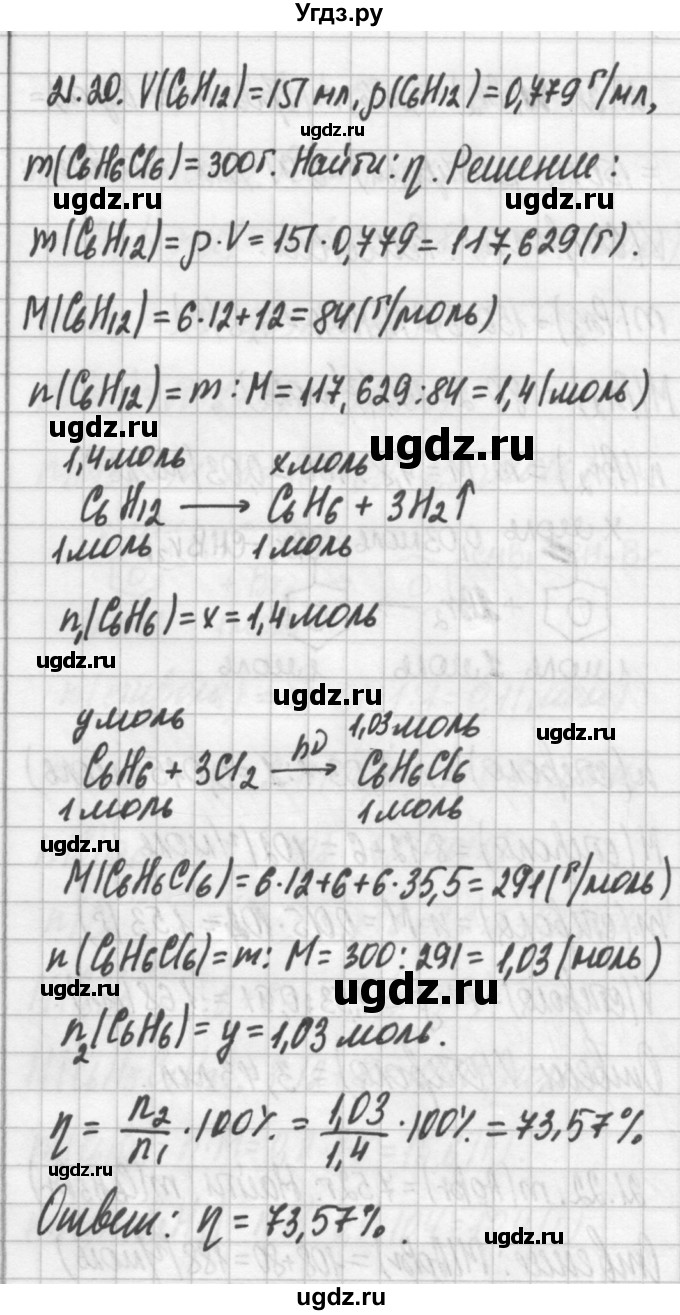 Угдз.ру
21.20. V(C₆H₁₂)=151 мл, ρ(C₆H₁₂)=0,779 г/мл,
ugdz.ru
m(C₆H₆Cl₆)=300г. Найти: η. Решение:
ugdz.ru ugdz.ru
m(C₆H₁₂)=ρ·V=151·0,779=117,629(г).
ugdz.ru
M(C₆H₁₂)=6·12+12=84(г/моль)
n(C₆H₁₂)=m:M=117,629:84=1,4(моль)
ugdz.ru ugdz.ru
1,4моль х моль
C₆H₁₂ ⟶ C₆H₆ + 3H₂↑
1 моль 1 моль
ugdz.ru ugdz.ru
n₁(C₆H₆)=x=1,4 моль
ugdz.ru
ugdz.ru
у моль 1,03 моль
ugdz.ru
C₆H₆ + 3Cl₂ hν⟶ C₆H₆Cl₆
1 моль 1 моль
ugdz.ru ugdz.ru
M(C₆H₆Cl₆)=6·12+6+6·35,5=291(г/моль)
n(C₆H₆Cl₆)=m:M=300:291=1,03(моль)
ugdz.ru ugdz.ru
n₂(C₆H₆)=y=1,03 моль.
η = n₂/n₁ ·100% = 1,03/1,4 ·100% = 73,57%
ugdz.ru ugdz.ru
Ответ: η = 73,57%.
ugdz.ru
Наш сайт: ugdz.ru